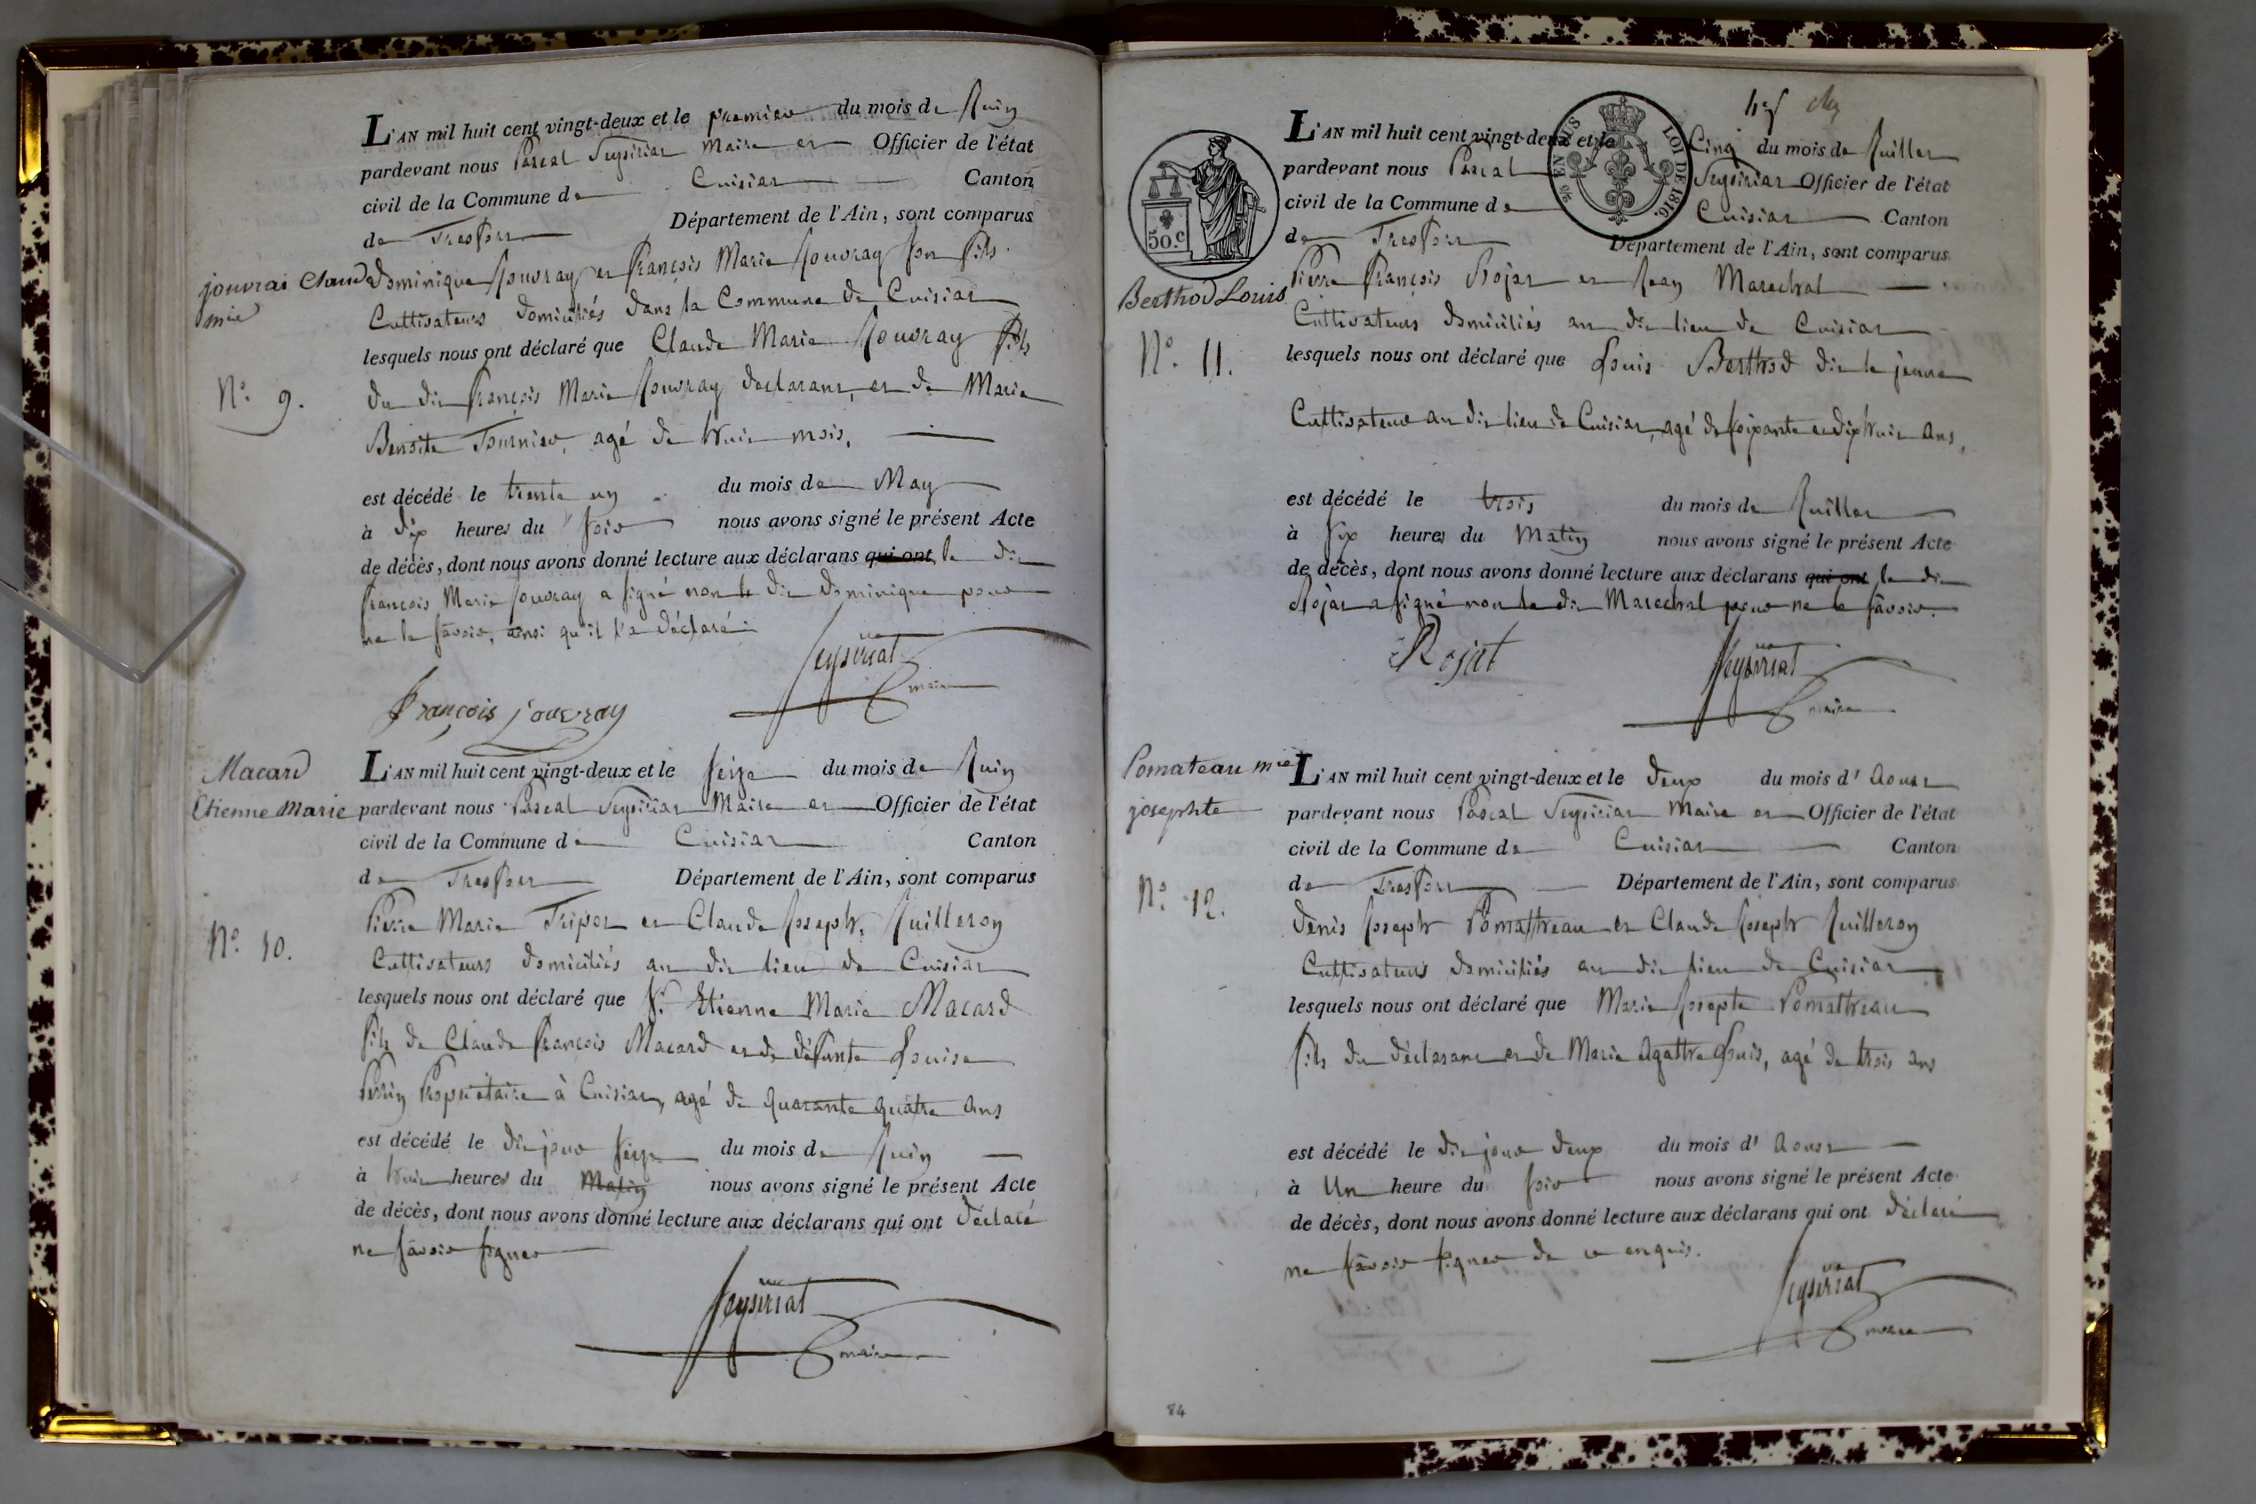 L'AN mil huit cent vingt-deux et le premier du mois de Juin
pardevant nous Pascal Seysiriat Maire et Officier de l'état
civil de la Commune de Cuisiat Canton
de Treffort Département de l'Ain, sont comparus
jouvrai Claude
mie
Dominique Jouvray et François Marie Jouvray son fils
Cultivateurs domiciliés dans la Commune de Cuisiat
lesquels nous ont déclaré que Claude Marie Jouvray fils
N.º 9.
du dit François Marie Jouvray declarant, et de Marie
Benoite Tournier, agé de huit mois,
est décédé le trente un du mois de May
à dix heures du soir nous avons signé le présent Acte
de décès, dont nous avons donné lecture aux déclarans qui ont le dit
François Marie Jouvray a signé non le dit Dominique pour
ne le sâvoir, ainsi qu'il l'a déclaré
Seysiriat
maire
François jouvray
Macard
Etienne Marie
L'AN mil huit cent vingt-deux et le seize du mois de Juin
pardevant nous Pascal Seysiriat Maire et Officier de l'état
civil de la Commune de Cuisiat Canton
de Treffort Département de l'Ain, sont comparus
Pierre Marie Tripoz et Claude Joseph Juilleron
N.º 10.
Cultivateurs domiciliés au dit lieu de Cuisiat
lesquels nous ont déclaré que S.r Etienne Marie Macard
fils de Claude François Macard et de défunte Louise
Perrin Propriétaire à Cuisiat, agé de quarante quatre ans
est décédé le dit jour seize du mois de Juin
à huit heures du Matin nous avons signé le présent Acte
de décès, dont nous avons donné lecture aux déclarans qui ont déclaré
ne sâvoir signer
Seysiriat
maire
50.c
EN SUS
LOI DE 1816.
L'AN mil huit cent vingt-deux et le Cinq du mois de Juillet
pardevant nous Pascal Seysiriat Officier de l'état
civil de la Commune de Cuisiat Canton
de Treffort Département de l'Ain, sont comparus
Berthod Louis
Pierre François Rojat et Jean Marechal
Cultivateurs domiciliés au dit lieu de Cuisiat
N.º 11.
lesquels nous ont déclaré que Louis Berthod dit le jeune
Cultivateur au dit lieu de Cuisiat, agé de soixante et dixhuit ans,
est décédé le trois du mois de Juillet
à six heures du Matin nous avons signé le présent Acte
de décès, dont nous avons donné lecture aux déclarans qui ont le dit
Rojat a signé non le dit Marechal pour ne le sâvoir.
Rojat
Seysiriat
maire
Pomateau mie
josephte
L'AN mil huit cent vingt-deux et le deux du mois d'Aoust
pardevant nous Pascal Seysiriat Maire et Officier de l'état
civil de la Commune de Cuisiat Canton
de Treffort Département de l'Ain, sont comparus
N.º 12.
Denis Joseph Pomathreau et Claude Joseph Juilleron
Cultivateurs domiciliés au dit lieu de Cuisiat
lesquels nous ont déclaré que Marie Josepte Pomathreau
fils du déclarant et de Marie Agathe Louis, agé de trois ans
est décédé le dit jour deux du mois d'Aoust
à Un heure du soir nous avons signé le présent Acte
de décès, dont nous avons donné lecture aux déclarans qui ont déclaré
ne sâvoir signer de ce enquis.
Seysiriat
maire
84